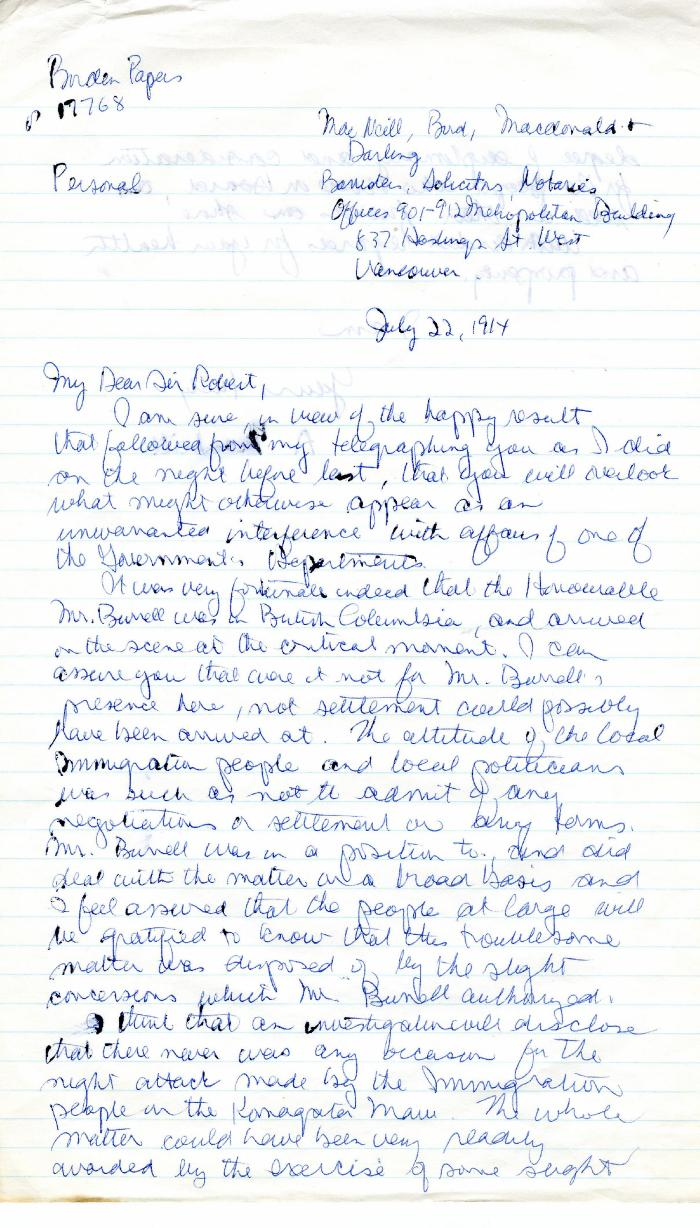 Borden Papers
p 17768
Mac Neill, Bird, Macdonald +
Darling
Personal
Barristers, Solicitors, Notaries
Offices 901-912 Metropolitan Building
837 Hastings St. West
Vancouver.
July 22, 1914
My Dear Sir Robert,
I am sure in view of the happy result
that followed from my telegraphing you as I did
on the night before last, that you will overlook
what might otherwise appear as an
unwarranted interference with affairs of one of
the Government's Departments.
It was very fortunate indeed that the Honourable
Mr. Burrell was in British Columbia, and arrived
on the scene at the critical moment. I can
assure you that were it not for Mr. Burrell's
presence here, not settlement could possibly
have been arrived at. The attitude of the local
Immigration people and local politicians
was such as not to admit of any
negotiations or settlement on any terms.
Mr. Burrell was in a position to, and did
deal with the matter on a broad basis and
I feel assured that the people at large will
be gratified to know that this troublesome
matter was disposed of by the slight
concessions which Mr. Burrell authorized.
I think that an investigation will disclose
that there never was any occasion for the
night attack made by the Immigration
people on the Komagata Maru. The whole
matter could have been very readily
avoided by the exercise of some slight